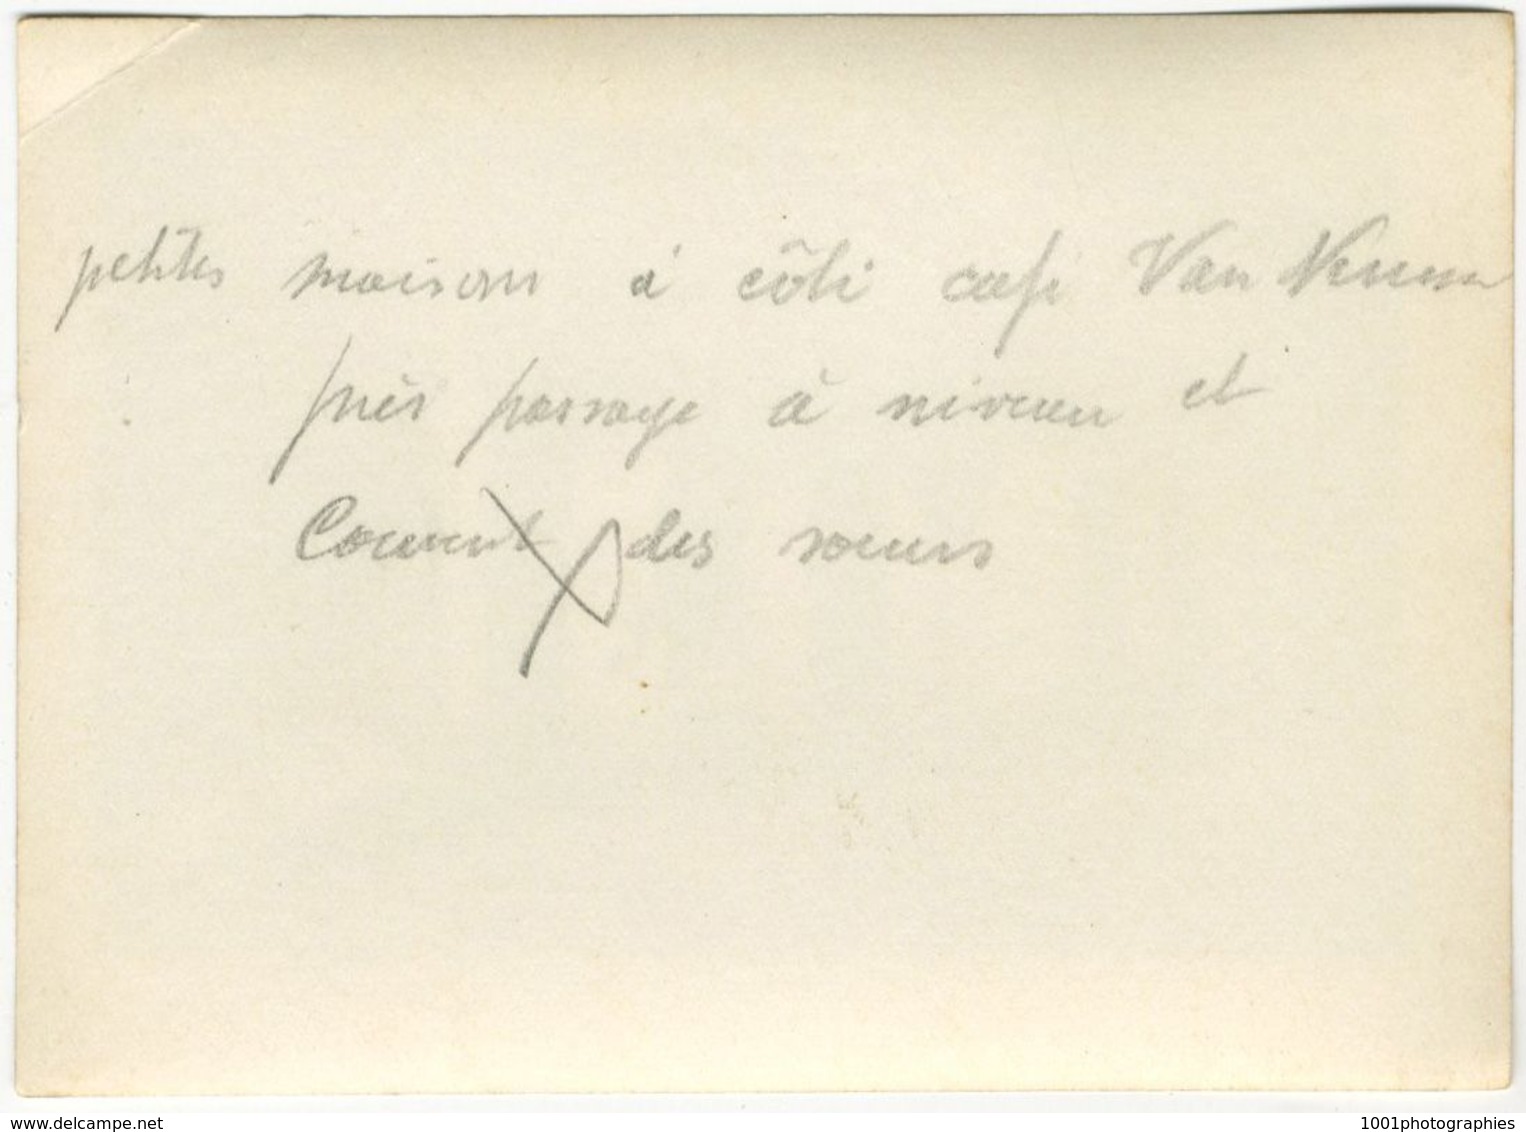 petites maison à côté café Van
près passage à niveau et
Couvent des soeurs
www.delcampe.net
1001photographies